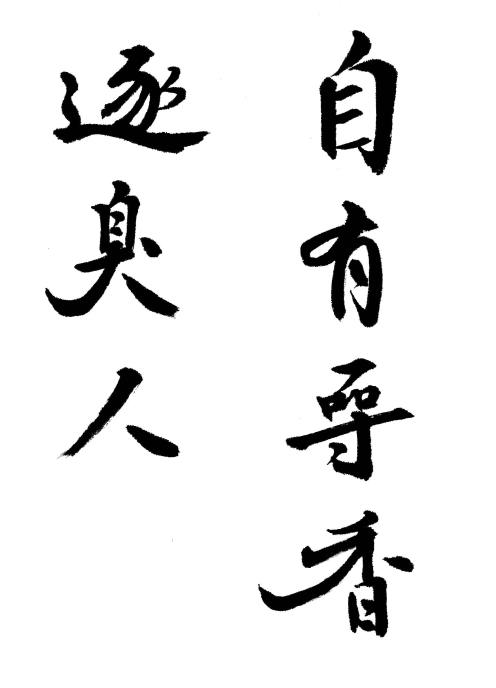 自有尋香
逐臭人